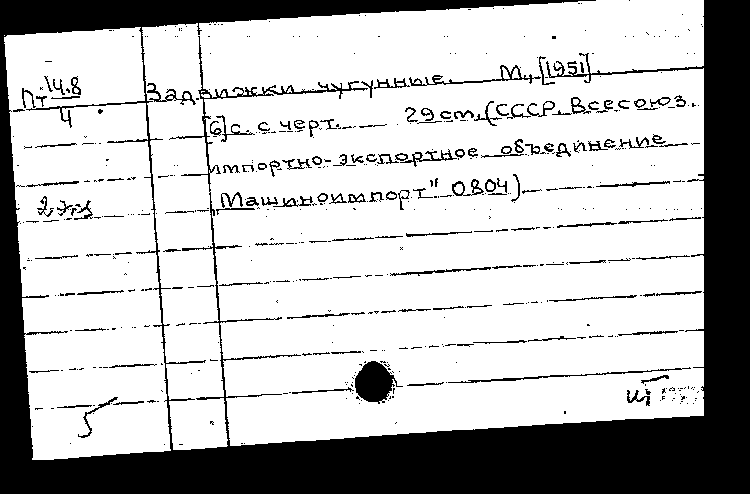 Пт 14.8
4
Задвижки чугунные. М., [1951].
[6] с. с черт. 29 cm, (СССР. Всесоюз.
импортно-экспортное объединение
„Машиноимпорт" 0804)
2 экз
5